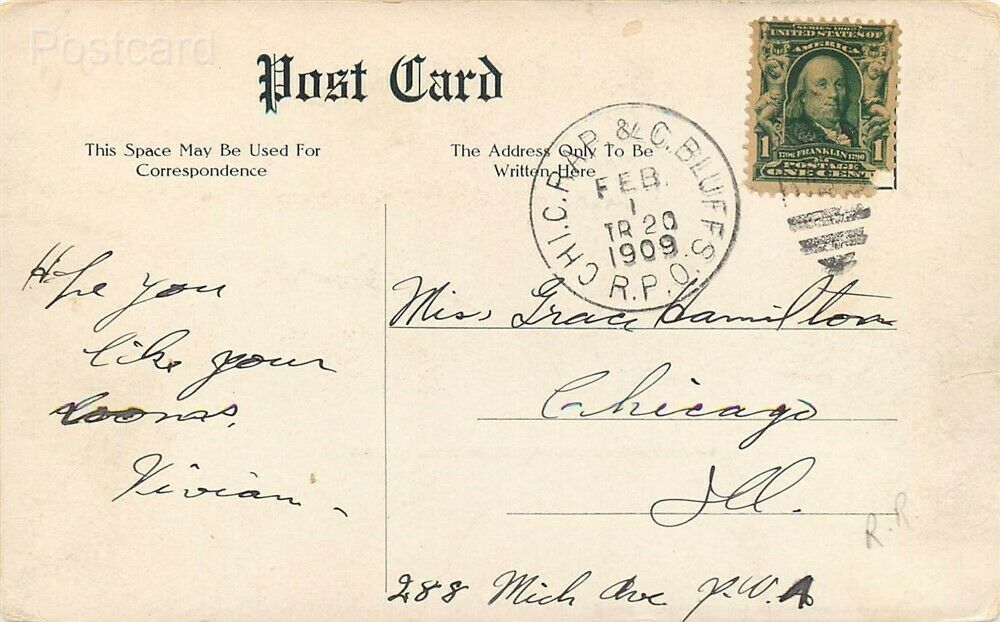 Postcard
Post Card
This Space May Be Used For
Correspondence
The Address Only To Be
Written Here
CHI. C. RAP. & C. BLUFFS.
FEB.
1
TR 20
1909
R.P.O.
SERIES 1902
UNITED STATES OF
AMERICA
1 1706 FRANKLIN 1790 1
POSTAGE
ONE CENT
Hope you
like your
rooms.
Vivian
Miss Grace Hamilton
Chicago
Ill.
R.R
288 Mich Ave Y.W.